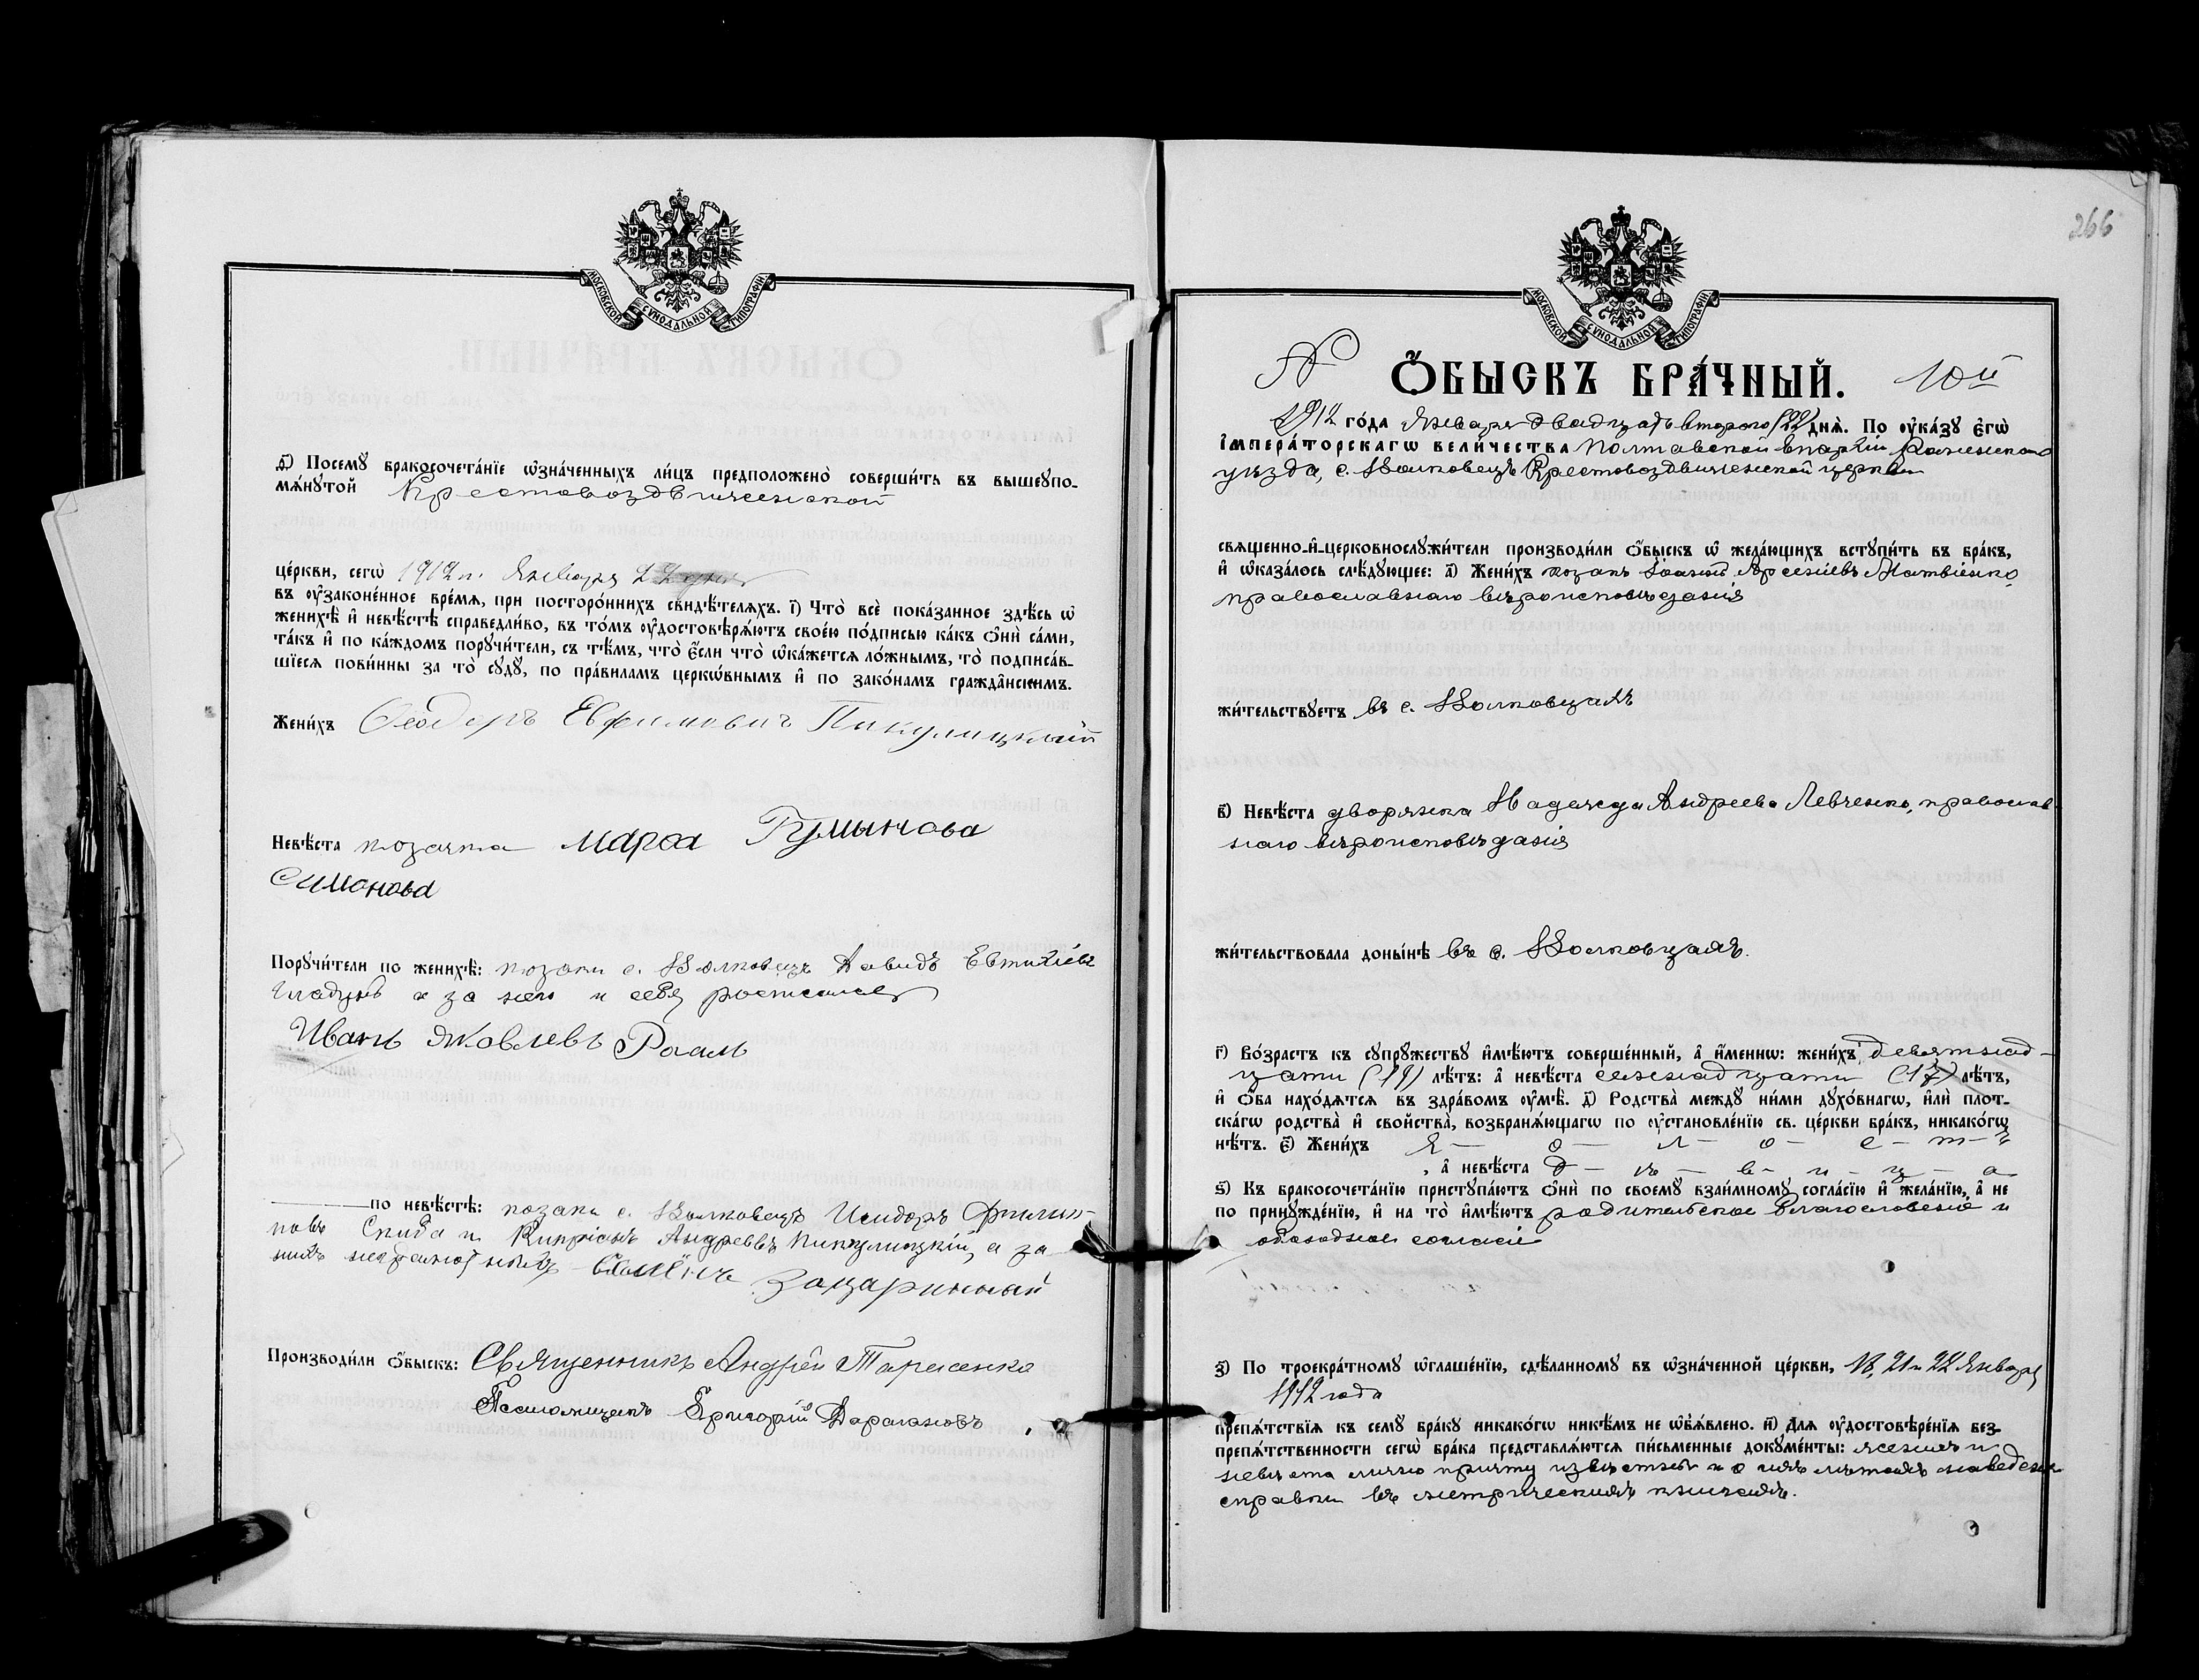 МОСКОВСКОЙ СѴНОДАЛЬНОЙ ТИПОГРАФІИ
ѳ҃) Посемꙋ̀ бракосочета́нїе ѡ҆зна́ченныхъ ли́цъ предположено̀ соверши́ть въ вышеупо-
мѧ́нꙋтой Крестовоздвиженской
це́ркви, сегѡ̀ 1912 г. Января 22 дня
въ ᲂу҆зако́ненное вре́мѧ, при посторо́ннихъ свидѣ́телѧхъ. і҃) Что̀ всѐ пока́занное здѣ́сь ѡ҆
женихѣ̀ и҆ невѣ́стѣ справедли́во, въ то́мъ ᲂу҆достовѣрѧ́ютъ свое́ю по́дписью ка́къ ѻ҆нѝ са́ми,
та́къ и҆ по ка́ждомъ порꙋчи́тели, съ тѣ́мъ, что̀ є҆́сли что̀ ѡ҆ка́жетсѧ ло́жнымъ, то̀ подписа́в-
шїесѧ пови́нны за то̀ сꙋдꙋ̀, по пра́виламъ церкѡ́внымъ и҆ по зако́намъ гражда̑нскимъ.
Жени́хъ Ѳеодоръ Евфимовичъ Пикулицкий
Невѣ́ста козачка Марфа Румынова
Симонова
Порꙋчи́тели по женихѣ̀: козаки с. Волковецъ Давидъ Евтихіевъ
Гладунъ а за него и себя росписался
Иванъ Яковлевъ Рогаль
по невѣ́стѣ: козаки с. Волковецъ Исидоръ Филип-
повъ Скиба и Кипріанъ Андреевъ Пикулицкій, а за
нихъ неграмотныхъ Захаринный
Производи́ли ѻ҆́быскъ: Священникъ Андрей Тарасенко
Псаломщикъ Григорій Дарагановъ
266
МОСКОВСКОЙ СѴНОДАЛЬНОЙ ТИПОГРАФІИ
№ Ѻ҆́БЫСКЪ БРА́ЧНЫЙ. 10й
1912 го́да Января двадцать второго (22) днѧ̀. По ᲂу҆ка́зꙋ Є҆гѡ̀
І҆мпера́торскагѡ вели́чества Полтавской епархіи Роменскаго
уѣзда, с. Волковецъ Крестовоздвиженской церкви
свѧщенно-и҆-церковнослꙋжи́тели производи́ли ѻ҆́быскъ ѡ҆ жела́ющихъ встꙋпи́ть въ бра́къ,
и҆ ѡ҆каза́лось слѣ́дꙋющее: а҃) Жени́хъ козакъ Іоаннъ Арсеніевъ Матвіенко
православнаго вѣроисповѣданія
жи́тельствꙋетъ въ с. Волковцахъ
в҃) Невѣ́ста дворянка Надежда Андреева Левченко, православ-
наго вѣроисповѣданія
жи́тельствовала доны́нѣ въ с. Волковцахъ.
г҃) Во́зрастъ къ сꙋпрꙋ́жествꙋ и҆мѣ́ютъ соверше́нный, а҆ и҆́меннѡ: жени́хъ девятнад-
цати (19) лѣ́тъ: а҆ невѣ́ста семнадцати (17) лѣ́тъ,
и҆ ѻ҆́ба нахо́дѧтсѧ въ здра́вомъ ᲂу҆мѣ̀. д҃) Родства̀ междꙋ̀ ни́ми дꙋхо́внагѡ, и҆лѝ плот-
ска́гѡ родства̀ и҆ сво́йства̀, возбранѧ́ющагѡ по ᲂу҆становле́нїю св. це́ркви бра́къ, никако́гѡ
нѣ́тъ. є҃) Жени́хъ Х — о — л — о — с — т — ъ
, а҆ невѣ́ста д — ѣ — в — и — ц — а
ѕ҃) Къ бракосочета́нїю пристꙋпа́ютъ ѻ҆нѝ по своемꙋ̀ взаи́мномꙋ согла́сїю и҆ жела́нїю, а҆ не
по принꙋжде́нїю, и҆ на то̀ и҆мѣ́ютъ родительское благословеніе и
обоюдное согласіе
з҃) По троекра́тномꙋ ѡ҆глаше́нїю, сдѣ́ланномꙋ въ ѡ҆зна́ченной це́ркви, 18, 21 и 22 Января
1912 года
препѧ́тствїѧ къ семꙋ̀ бра́кꙋ никако́гѡ никѣ́мъ не ѡ҆б̾ѧ́влено. и҃) Длѧ ᲂу҆достовѣре́нїѧ без-
препѧ́тственности сегѡ̀ бра́ка представлѧ́ютсѧ пи́сьменные докꙋме́нты: женихъ и
невѣста лично причту извѣстны и о ихъ лѣтахъ наведена
справка въ метрическихъ книгахъ.